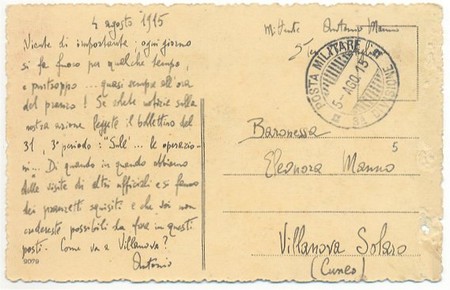 4 agosto 1915
Niente di importante; ogni giorno
si fa fuoco per qualche tempo,
e purtroppo ... quasi sempre all'ora
del pranzo! Se volete notizie sulla
nostra azione leggete il bollettino del
31, 3° periodo: "Sulle ... le operazio-
ni... Di quando in quando abbiamo
delle visite di altri ufficiali e si fanno
dei pranzetti squisiti e che voi non
credereste possibili da fare in questi
posti. Come va a Villanova?
Antonio
9079
Mittente Antonio Manno
POSTA MILITARE
5 AGO. 15
DIVISIONE
Baronessa
5
Eleonora Manno
Villanova Solaro
(Cuneo)